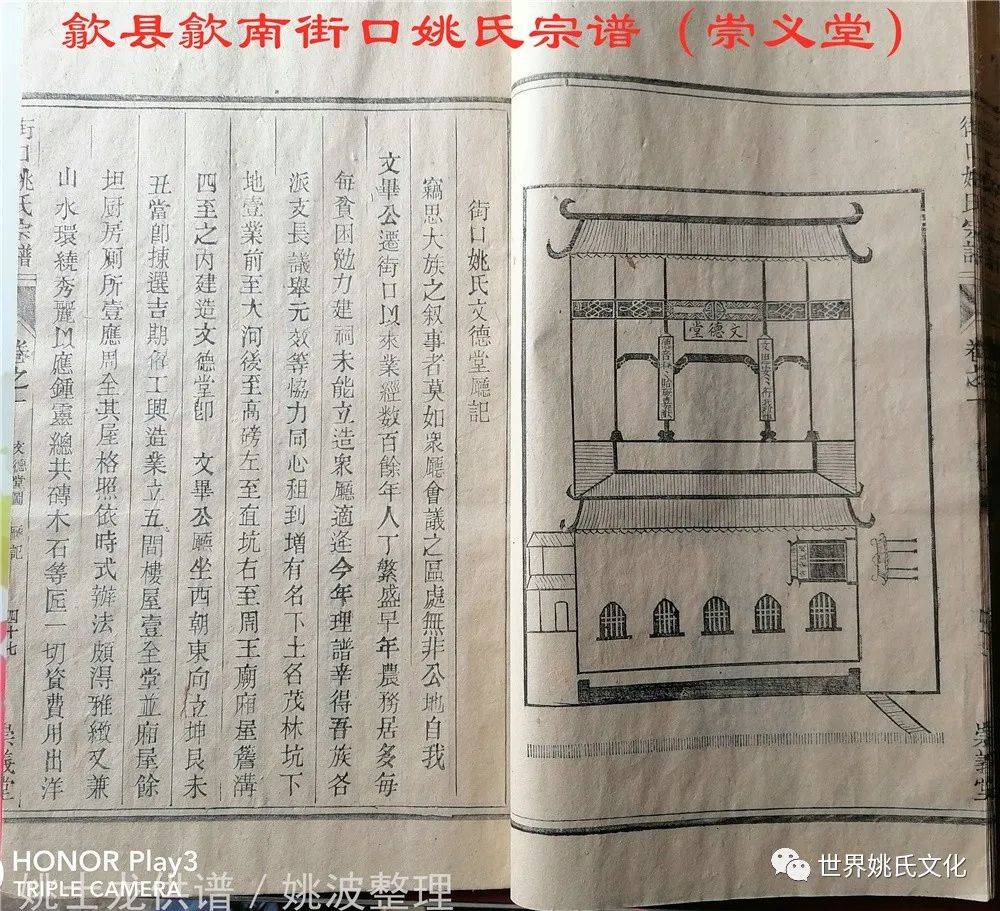 歙县歙南街口姚氏宗谱（崇义堂）
街口姚氏宗譜
卷之一
崇義堂
文德堂
街口姚氏文德堂廳記
竊思大族之叙事者莫如衆廳會議之區處無非公地自我
文畢公遷街口以來業經数百餘年人丁繁盛早年農務居多每
每貧困勉力建祠未能立造衆廳適逢今年理譜幸得吾族各
派支長議舉元效等恊力同心租到增有名下土名茂林坑下
地壹業前至大河後至高磅左至直坑右至周王廟廂屋舊溝
四至之内建造文德堂卽 文畢公廳坐西朝東向立坤艮未
丑當卽揀選吉期僱工興造業立五間樓屋壹至堂並廂屋餘
坦厨房厠所壹應周全其屋格照依時式辦法頗得雅緻又兼
山水環繞秀麗以應鍾靈總共磚木石等匠一切資費用出洋
街口姚氏宗譜
卷之一
文德堂圖 廳記
四十七
崇義堂
HONOR Play3
TRIPLE CAMERA
姚土龙供谱/姚波整理
世界姚氏文化